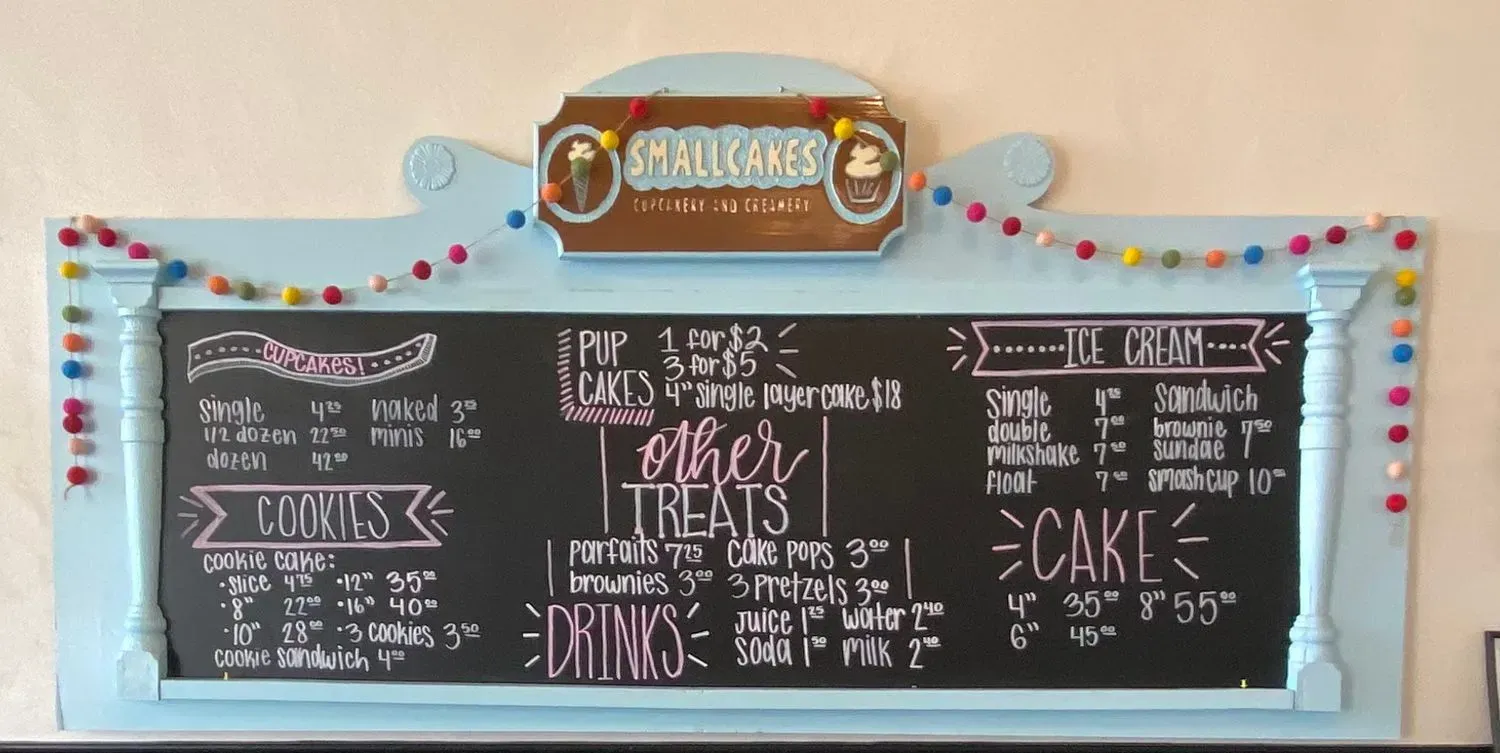 SMALLCAKES
CUPCAKERY AND CREAMERY
CUPCAKES!
single 4 25 naked 3 25
1/2 dozen 22 50 minis 16 00
dozen 42 00
COOKIES
cookie cake:
·slice 4 75 ·12" 35 00
·8" 22 00 ·16" 40 00
·10" 28 00 ·3 cookies 3 50
cookie sandwich 4 00
PUP CAKES
1 for $2
3 for $5
4" single layer cake $18
other
TREATS
parfaits 7 25 cake pops 3 00
brownies 3 00 3 Pretzels 3 00
DRINKS
juice 1 25 water 2 40
soda 1 50 milk 2 40
ICE CREAM
single sandwich
double 7 00 brownie 7 50
milkshake 7 50 sundae 7
float 7 00 smash cup 10
CAKE
4" 35 00 8" 55 00
6" 45 00